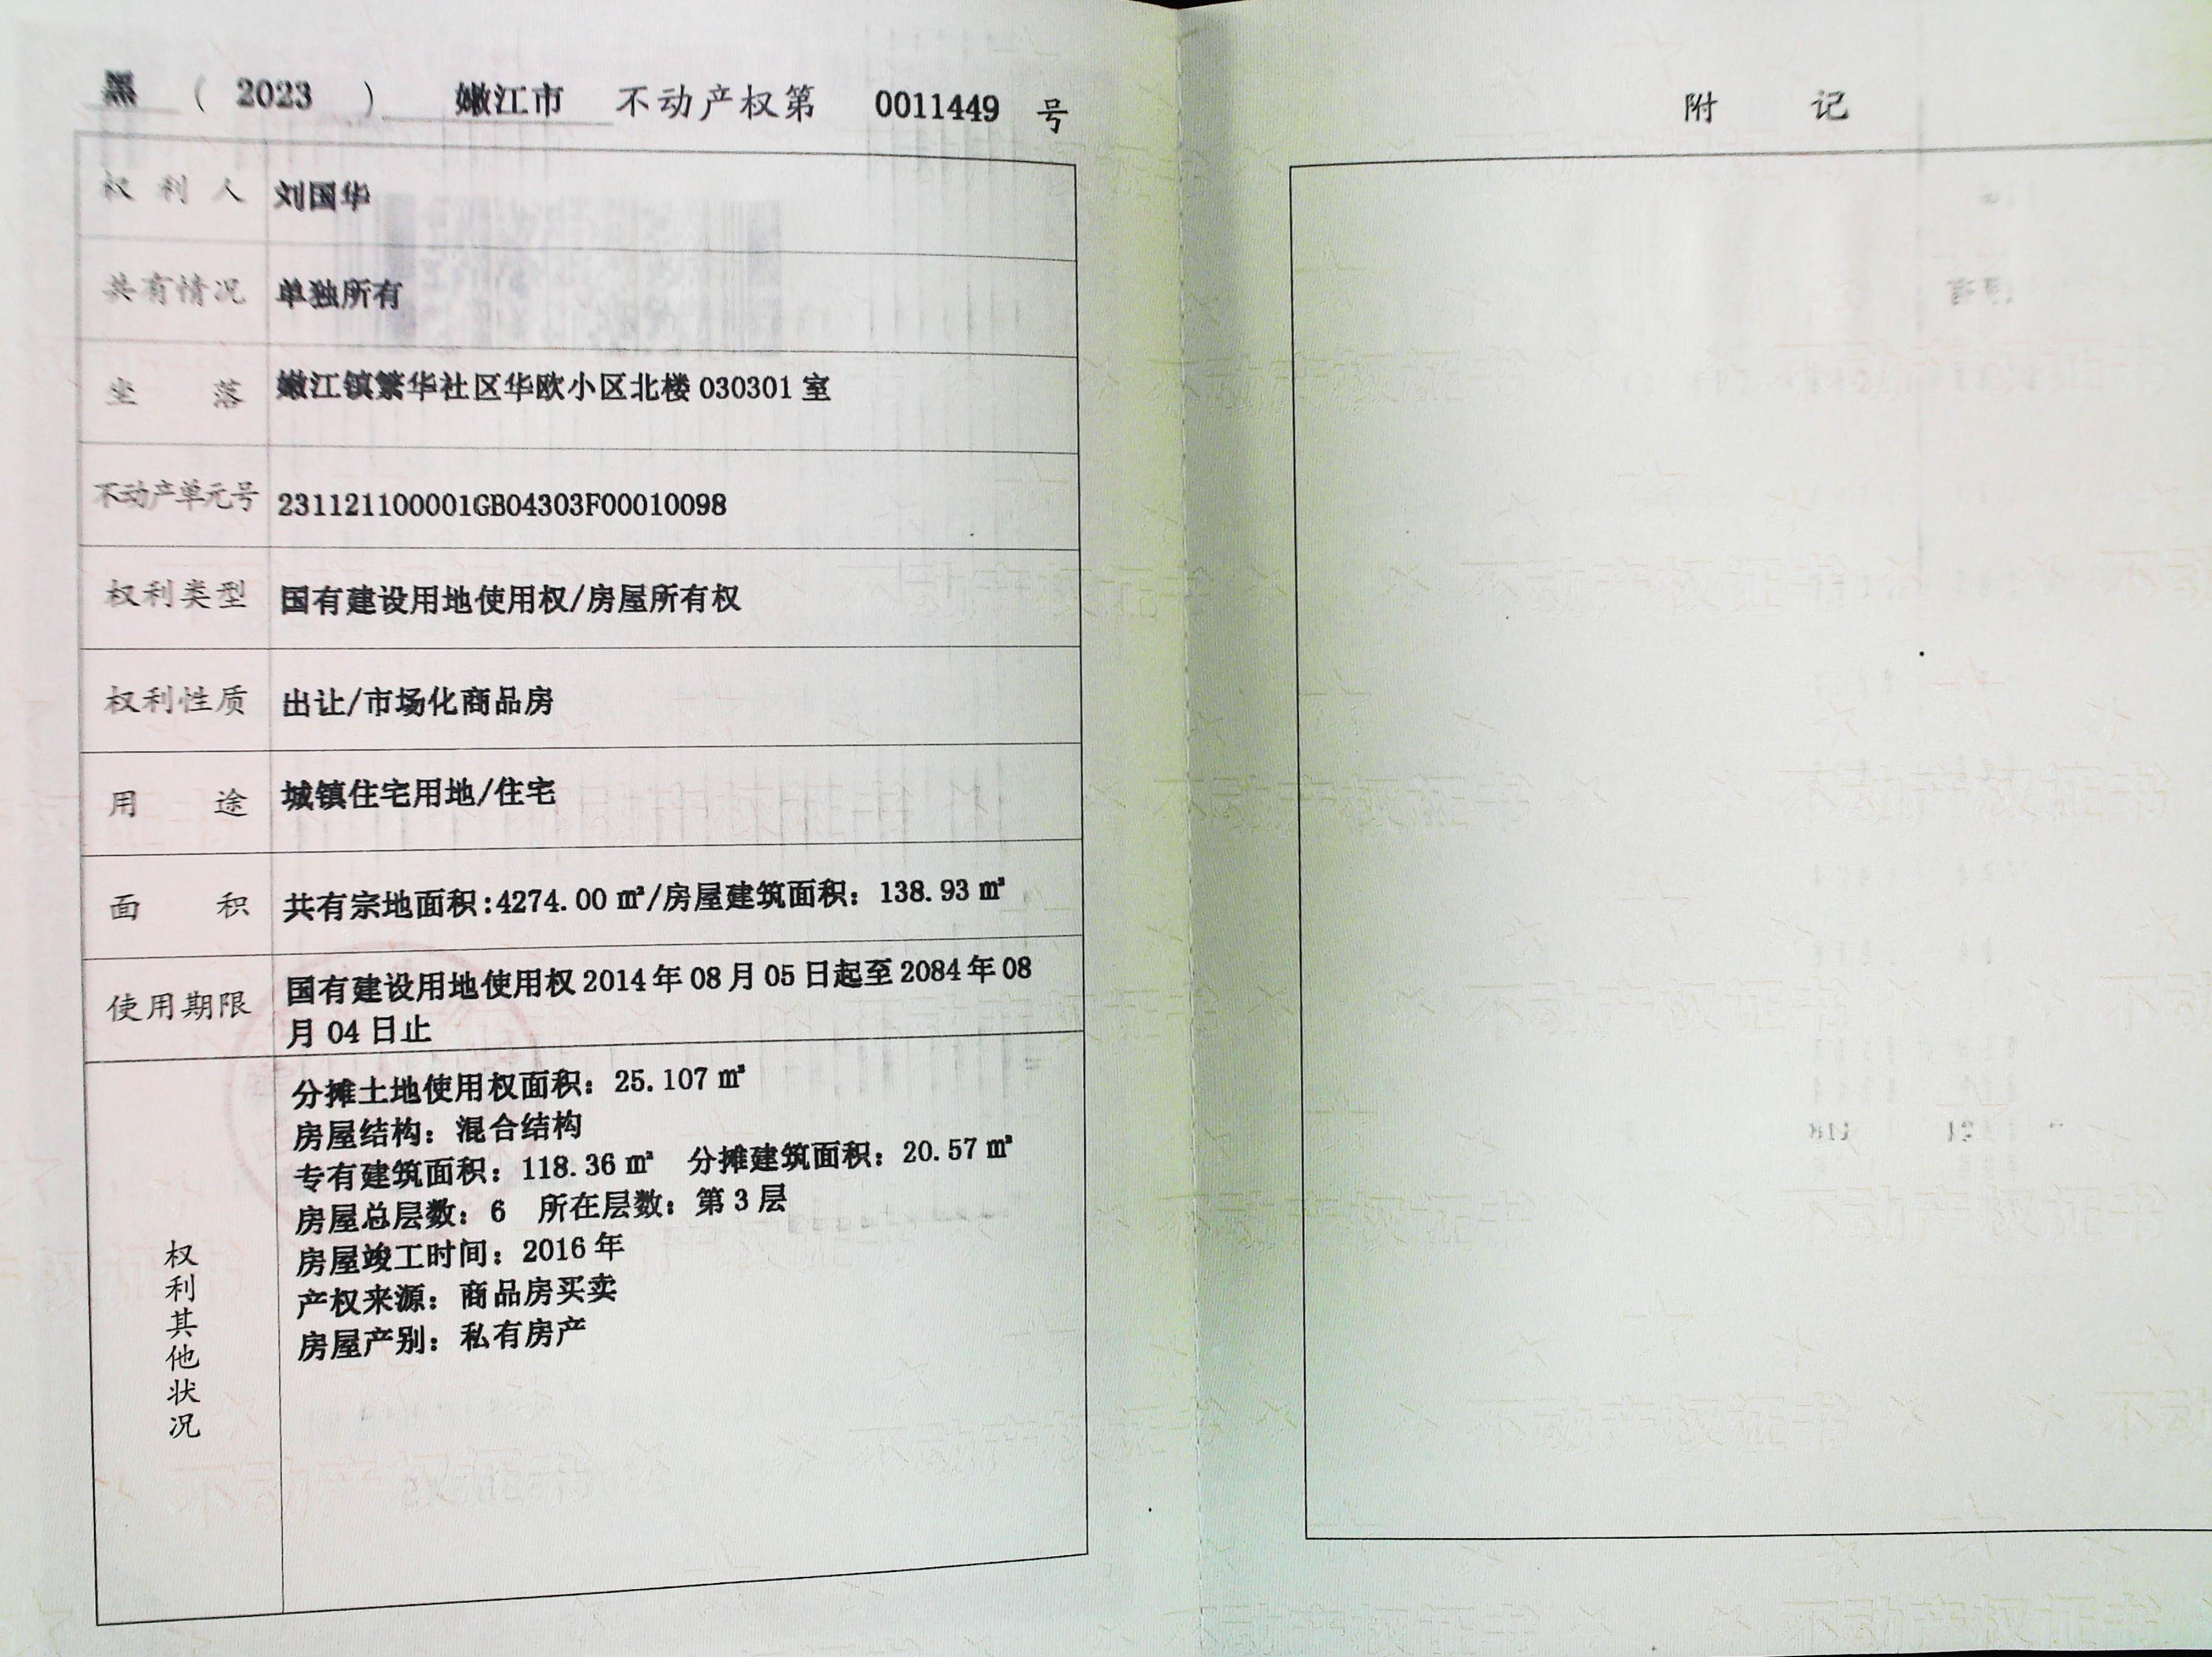 黑 ( 2023 ) 嫩江市 不动产权第 0011449 号
权利人 刘国华
共有情况 单独所有
坐落 嫩江镇繁华社区华欧小区北楼 030301 室
不动产单元号 231121100001GB04303F00010098
权利类型 国有建设用地使用权/房屋所有权
权利性质 出让/市场化商品房
用途 城镇住宅用地/住宅
面积 共有宗地面积:4274.00 ㎡/房屋建筑面积: 138.93 ㎡
使用期限 国有建设用地使用权 2014 年 08 月 05 日起至 2084 年 08
月 04 日止
权利其他状况
分摊土地使用权面积: 25.107 ㎡
房屋结构: 混合结构
专有建筑面积: 118.36 ㎡ 分摊建筑面积: 20.57 ㎡
房屋总层数: 6 所在层数: 第 3 层
房屋竣工时间: 2016 年
产权来源: 商品房买卖
房屋产别: 私有房产
附记